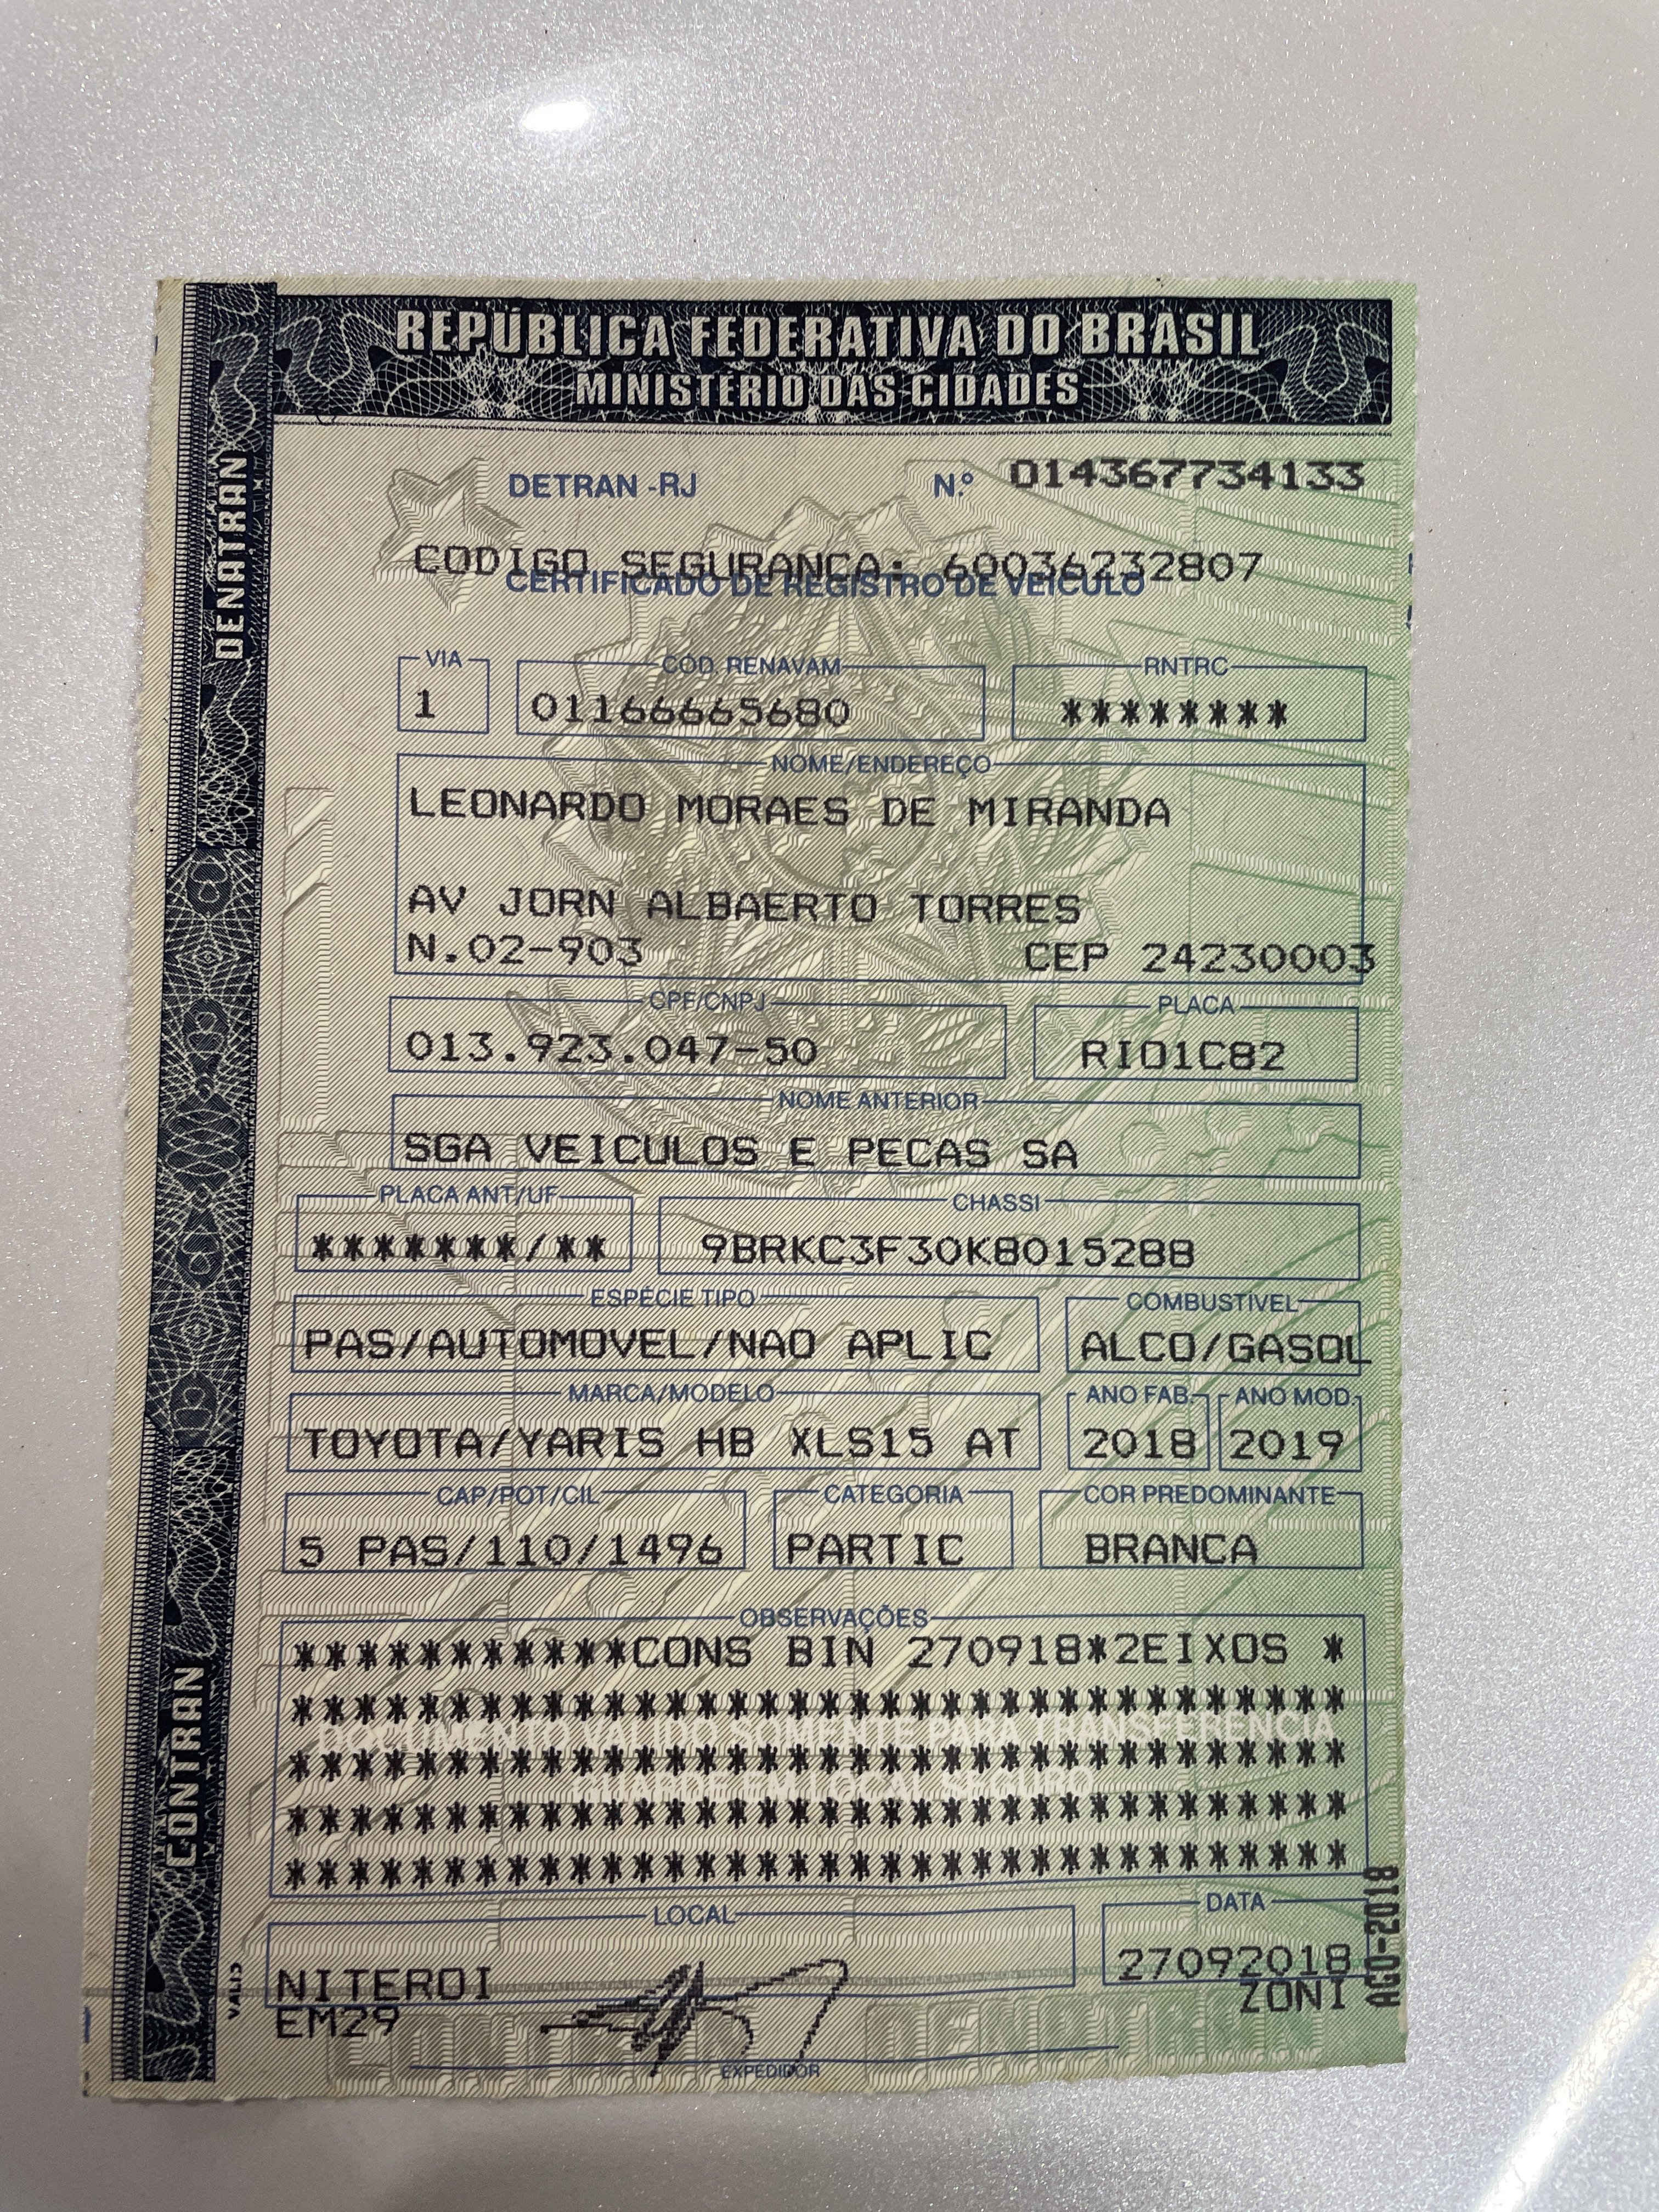 REPÚBLICA FEDERATIVA DO BRASIL
MINISTÉRIO DAS CIDADES
DENATRAN
CONTRAN
DETRAN -RJ N.º 014367734133
CODIGO SEGURANCA: 60036232807
CERTIFICADO DE REGISTRO DE VEÍCULO
VIA CÓD. RENAVAM RNTRC
1 01166665680 ********
NOME/ENDEREÇO
LEONARDO MORAES DE MIRANDA
AV JORN ALBAERTO TORRES
N.02-903 CEP 24230003
CPF/CNPJ PLACA
013.923.047-50 RIO1C82
NOME ANTERIOR
SGA VEICULOS E PECAS SA
PLACA ANT/UF CHASSI
*******/** 9BRKC3F30K8015288
ESPÉCIE TIPO COMBUSTÍVEL
PAS/AUTOMOVEL/NAO APLIC ALCO/GASOL
MARCA/MODELO ANO FAB. ANO MOD.
TOYOTA/YARIS HB XLS15 AT 2018 2019
CAP/POT/CIL CATEGORIA COR PREDOMINANTE
5 PAS/110/1496 PARTIC BRANCA
OBSERVAÇÕES
***********CONS BIN 270918*2EIXOS *
************************************
DOCUMENTO VÁLIDO SOMENTE PARA TRANSFERÊNCIA
************************************
GUARDE EM LOCAL SEGURO
************************************
************************************
LOCAL DATA
NITEROI 27092018
EM29 ZONI
AGO-2018
EXPEDIDOR
CONTRAN DENATRAN